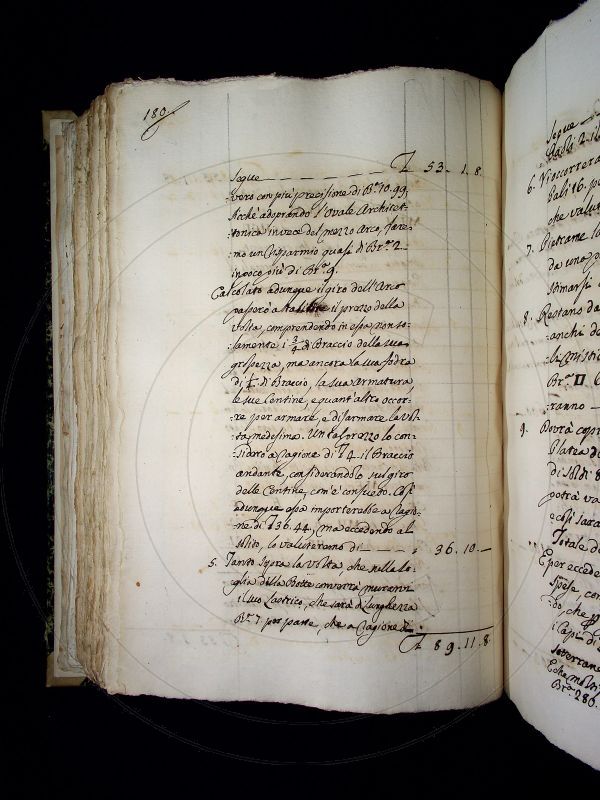 180
Segue — — — — — — — — £ 53. 1. 8.
vero con più precisione di Br.ª 10.99.
Acchè adoprando l'Ovale Architet-
:tonica invece del mezzo Arco, fare-
:mo un risparmio quasi di Br.ª 2
in poco più di Br.ª 9.
Calcolato adunque il giro dell'Arco
passerò a il prezzo della
Volta, comprendendo in essa non so-
:lamente i 3/4 di Braccio della sua
grossezza, ma ancora la sua fodra
di 1/4 di Braccio, la sua armatura,
le sue Centine, e quant'altro occor-
:re per armare, e disarmare la Vol-
:ta medesima. Un tal prezzo lo con-
:sidero a ragione di 4 il Braccio
andante, considerandolo sul giro
delle Centine, com'è consueto. Così
adunque essa importerebbe a ragio-
:ne di 36.44, ma eccedendo al
solito, lo valuteremo di — — — „ 36. 10. —
5. Tanto sopra la Volta che nella So-
:glia della Botte converrà murarvi
il suo Lastrico, che sarà di lunghezza
Br.ª 7 per parte, che a ragione di
£ 89. 11. 8.
Segue
6. Vi occorrera
pali 16. p
che valut
7. Pietrame lo
da uno p
stimarsi
8. Restano da
anchi de
Br.ª
:ranno —
9. Dovrà copr
Platea d
di soldi 8
potrà va
e così sara
Totale d
E per eccede
Spese, con
:do, che p
i Capi di
sotterran
Br.ª 286.